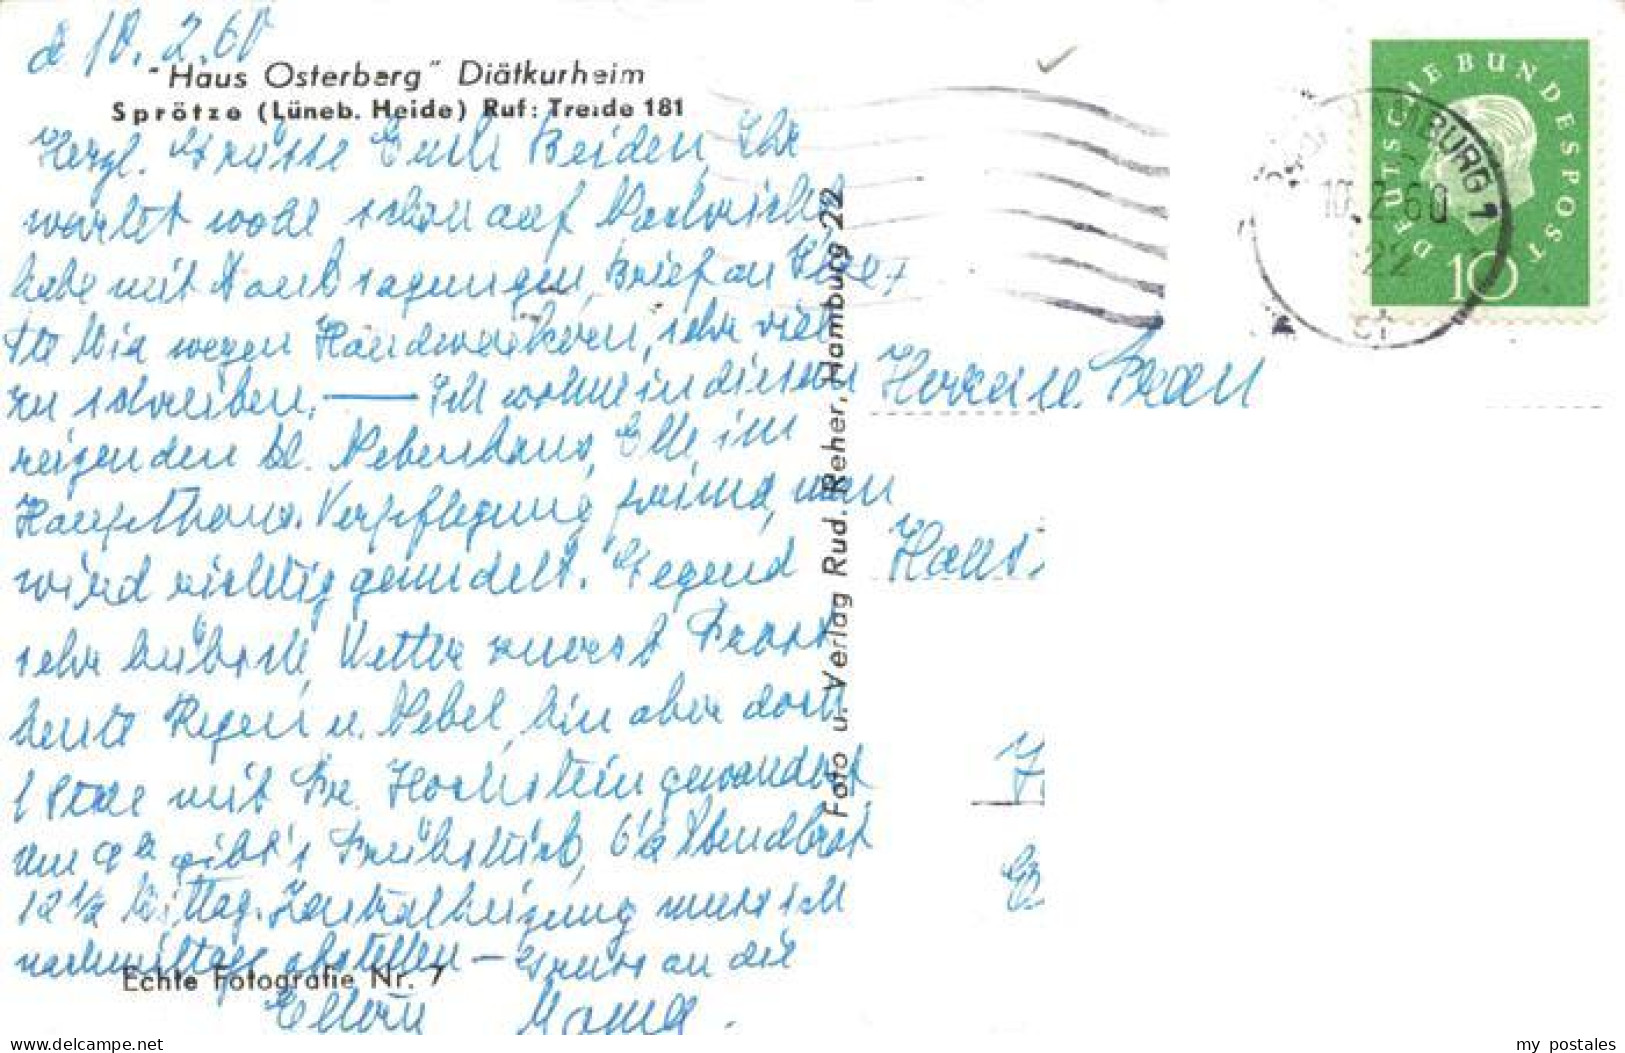 d 10.2.60
"Haus Osterberg" Diätkurheim
Sprötze (Lüneb. Heide) Ruf: Treide 181
Herzl. Grüsse Euch Beiden, Ihr
wartet wohl schon auf Nachricht
habe mit Danksagungen, Brief an
wegen Handwerkern, sehr viel
zu schreiben. — Ich wohne in diesem
reizenden kl. Nebenhaus, Elle im
Haupthaus. Verpflegung prima, man
wird richtig genudelt. Gegend
sehr hübsch, Wetter zuerst Frost
heute Regen u. Nebel, bin aber doch
1 Stde mit Fr. Hochstein gewandert
um gibt's Frühstück, 6½ Abendbrot
12½ Mittag. Zentralheizung muss ich
nachmittags abstellen — Gruss an die
Eltern Mama.
Echte Fotografie Nr. 7
Foto u. Verlag Rud. Reher, Hamburg 22
DEUTSCHE BUNDESPOST
10
HAMBURG 1
10.2.60
22
Herrn u. Frau